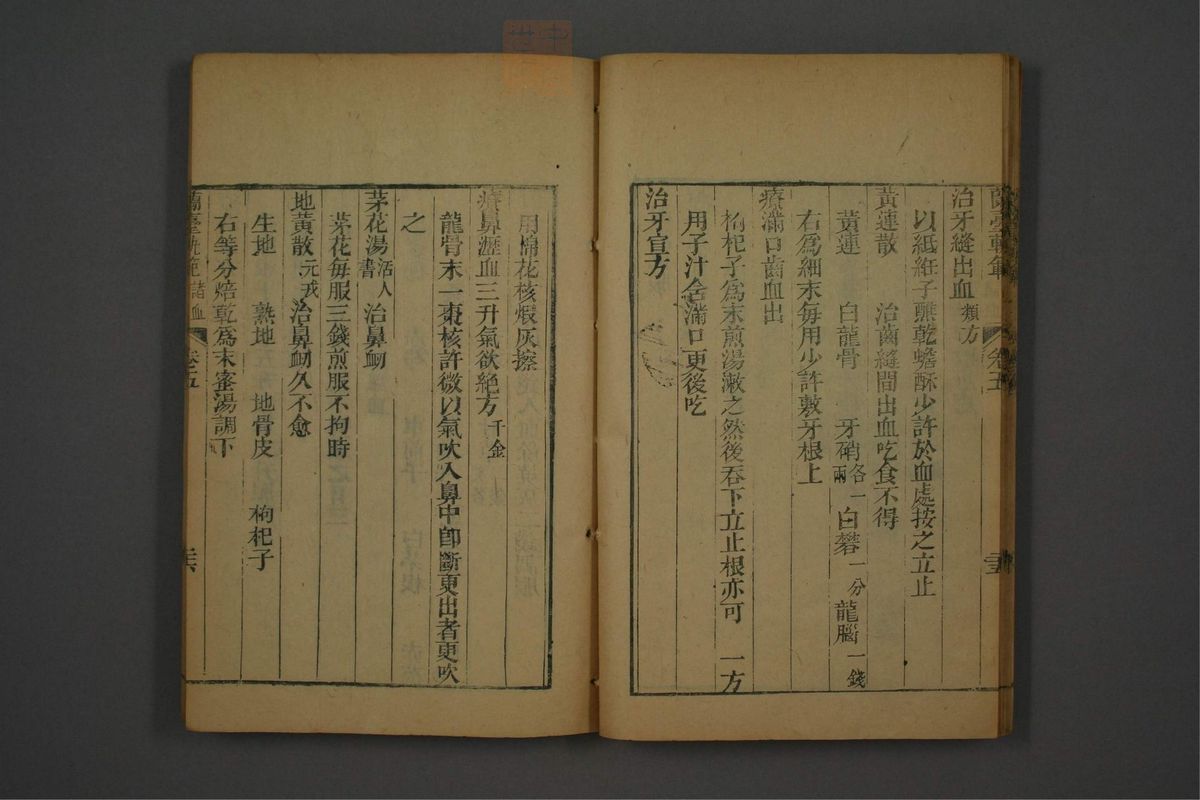 治牙縫出血類方
以紙紝子蘸乾蟾酥少許於血處按之立止
黃連散 治齒縫間出血吃食不得
黃連 白龍骨 牙硝各一兩 白礬一分 龍腦一錢
右爲細末每用少許敷牙根上
療滿口齒血出
枸杞子爲末煎湯漱之然後吞下立止根亦可 一方
用子汁含滿口更後吃
治牙宣方
用棉花核煅灰擦
療鼻瀝血三升氣欲絕方千金
龍骨末一棗核許微以氣吹入鼻中卽斷更出者更吹
之
茅花湯活人書 治鼻衂
茅花每服三錢煎服不拘時
地黃散元戎 治鼻衂久不愈
生地 熟地 地骨皮 枸杞子
右等分焙乾爲末蜜湯調下
蘭臺軌範 諸血 卷五